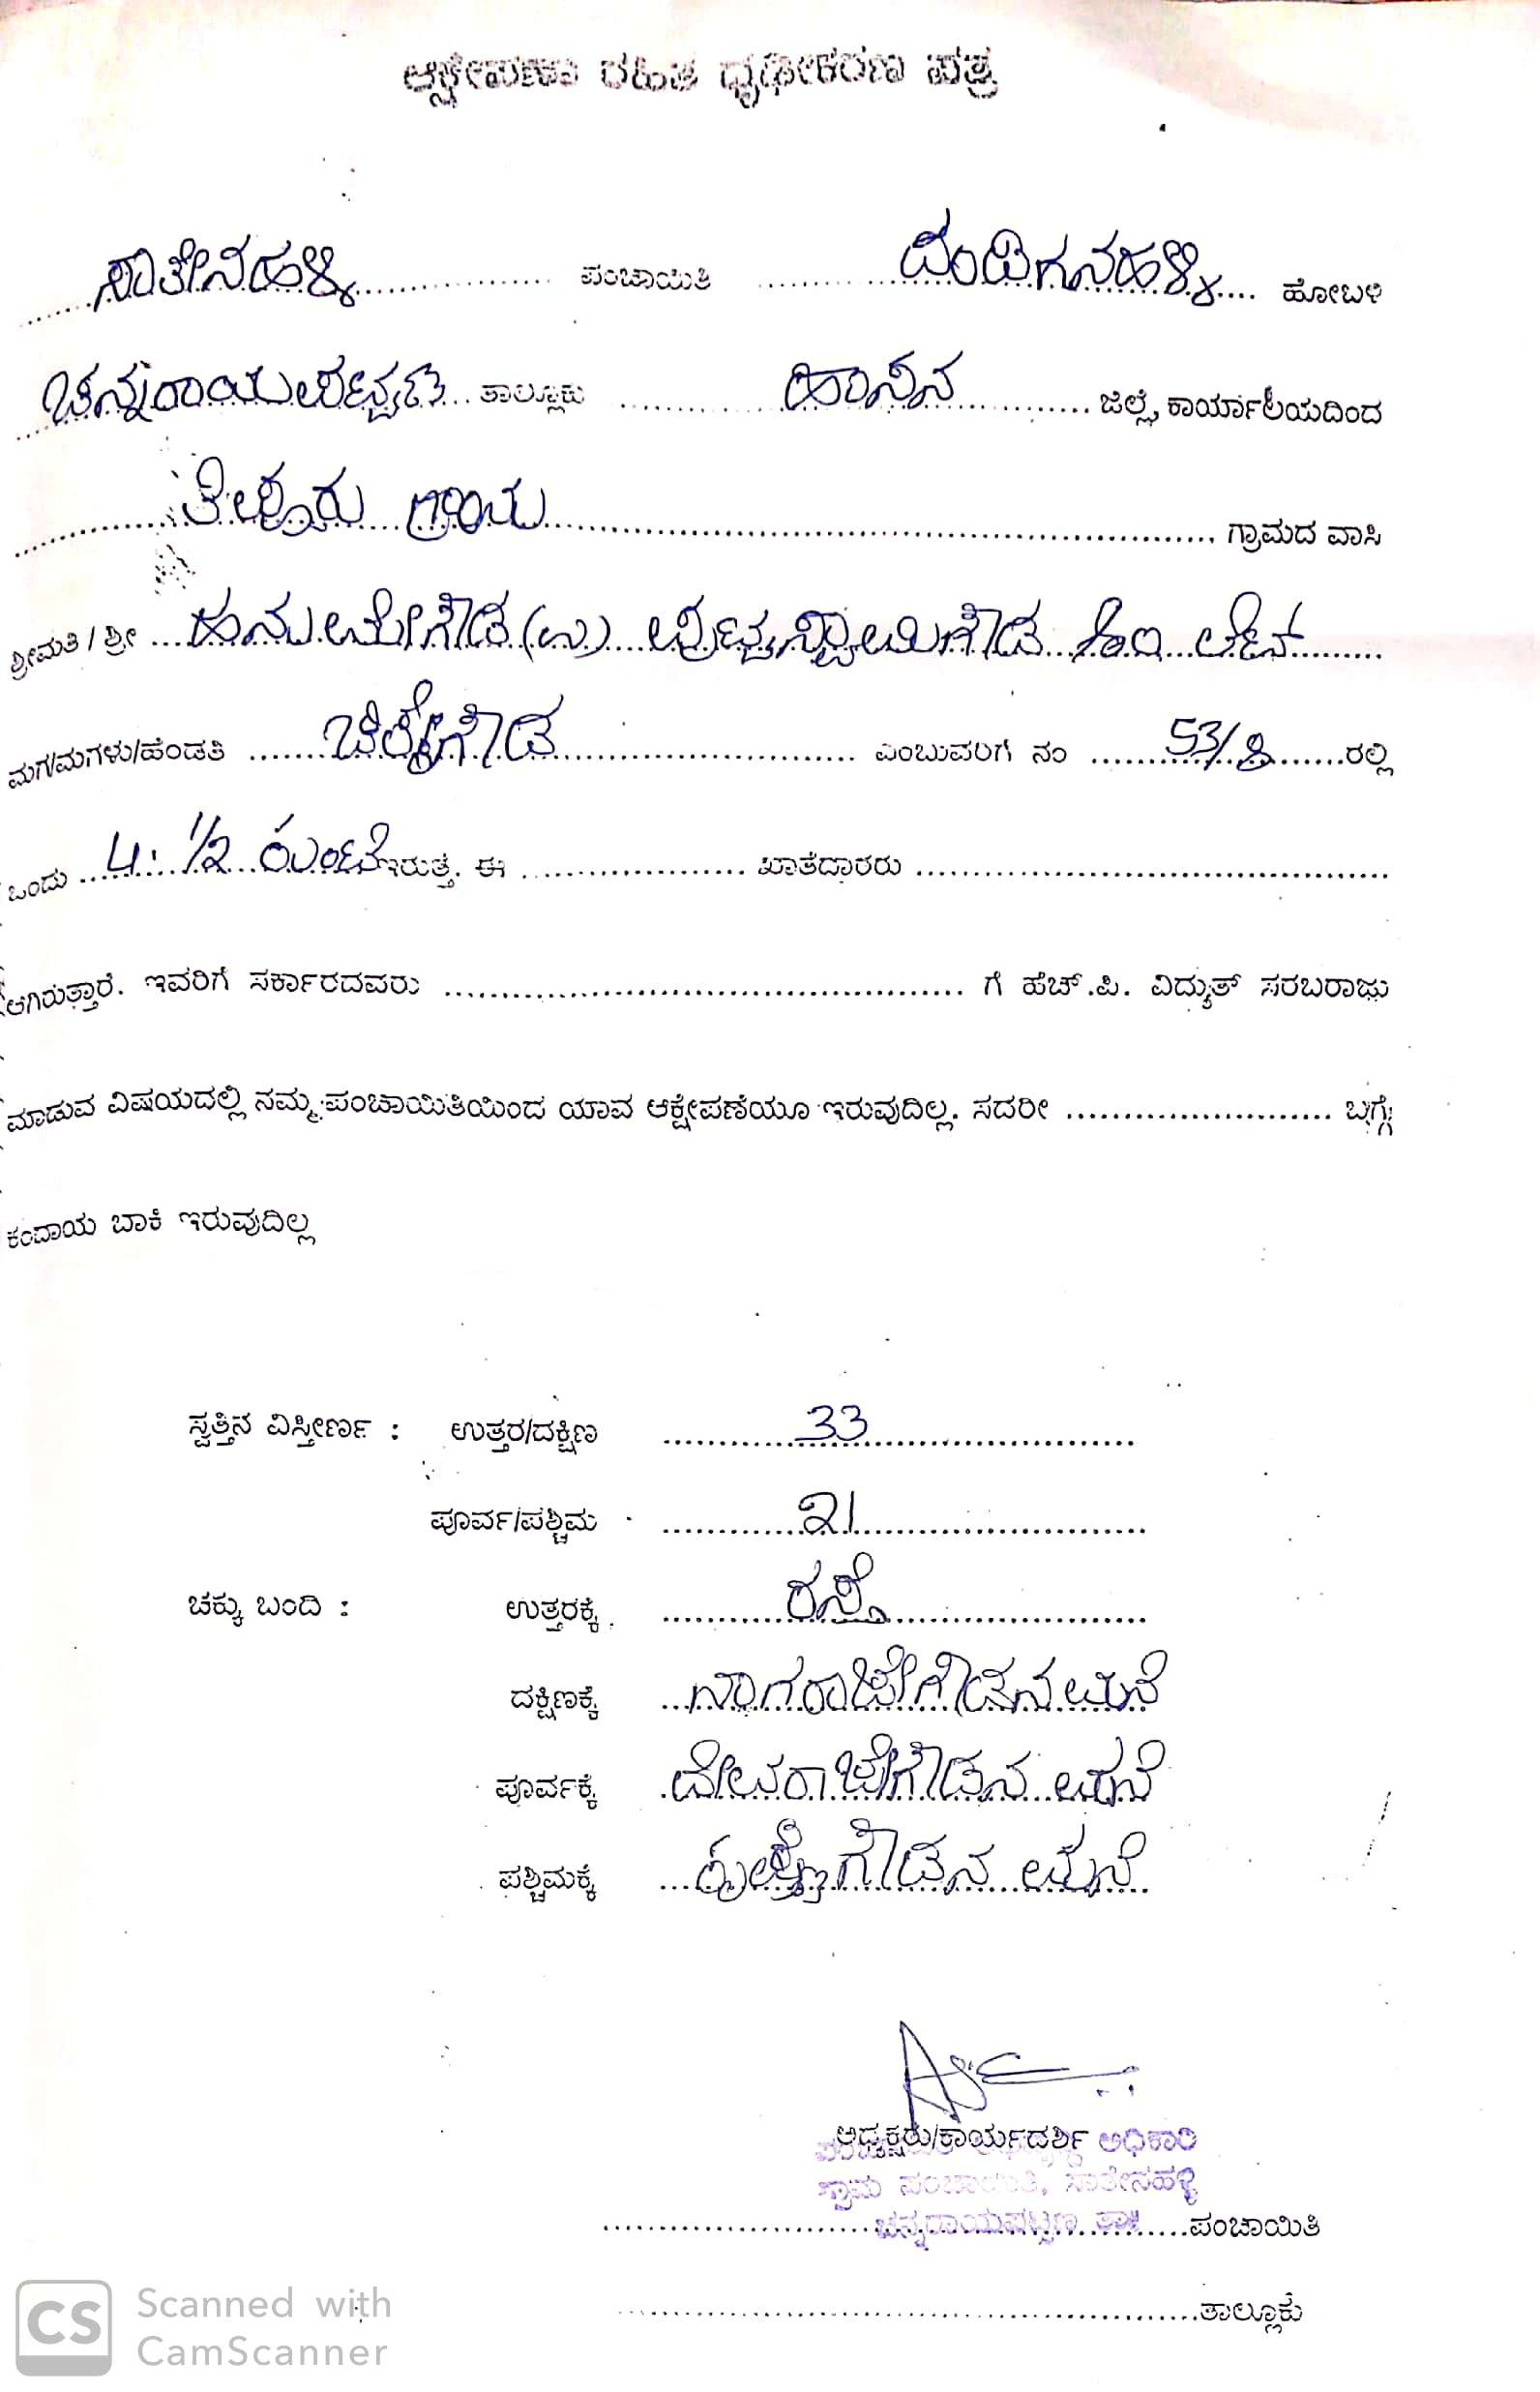 ಆಕ್ಷೇಪಣಾ ರಹಿತ ಧೃಢೀಕರಣ ಪತ್ರ
ಸಾತೇನಹಳ್ಳಿ ಪಂಚಾಯಿತಿ ದಂಡಿಗನಹಳ್ಳಿ ಹೋಬಳಿ
ಚನ್ನರಾಯಪಟ್ಟಣ ತಾಲ್ಲೂಕು ಹಾಸನ ಜಿಲ್ಲೆ, ಕಾರ್ಯಾಲಯದಿಂದ
ಗ್ರಾಮ ಗ್ರಾಮದ ವಾಸಿ
ಶ್ರೀಮತಿ / ಶ್ರೀ ಹನುಮೇಗೌಡ (ಉ) ಪುಟ್ಟಸ್ವಾಮಿಗೌಡ ಬಿನ್
ಮಗ/ಮಗಳು/ಹೆಂಡತಿ ಚಿಕ್ಕೇಗೌಡ ಎಂಬುವರಿಗೆ ನಂ 53/ ರಲ್ಲಿ
ಒಂದು 4. 1/2 ಗುಂಟೆ ಇರುತ್ತೆ. ಈ ಖಾತೆದಾರರು
ಆಗಿರುತ್ತಾರೆ. ಇವರಿಗೆ ಸರ್ಕಾರದವರು ಗೆ ಹೆಚ್.ಪಿ. ವಿದ್ಯುತ್ ಸರಬರಾಜು
ಮಾಡುವ ವಿಷಯದಲ್ಲಿ ನಮ್ಮ ಪಂಚಾಯಿತಿಯಿಂದ ಯಾವ ಆಕ್ಷೇಪಣೆಯೂ ಇರುವುದಿಲ್ಲ. ಸದರೀ ಬಗ್ಗೆ
ಕಂದಾಯ ಬಾಕಿ ಇರುವುದಿಲ್ಲ
ಸ್ವತ್ತಿನ ವಿಸ್ತೀರ್ಣ : ಉತ್ತರ/ದಕ್ಷಿಣ 33
ಪೂರ್ವ/ಪಶ್ಚಿಮ 21
ಚಕ್ಕು ಬಂದಿ : ಉತ್ತರಕ್ಕೆ ರಸ್ತೆ
ದಕ್ಷಿಣಕ್ಕೆ ನಾಗರಾಜೇಗೌಡನ ಮನೆ
ಪೂರ್ವಕ್ಕೆ ದೇವರಾಜೇಗೌಡನ ಮನೆ
ಪಶ್ಚಿಮಕ್ಕೆ ಮನೆ
ಅಧ್ಯಕ್ಷರು/ಕಾರ್ಯದರ್ಶಿ ಅಧಿಕಾರಿ
ಗ್ರಾಮ ಪಂಚಾಯಿತಿ, ಸಾತೇನಹಳ್ಳಿ
ಚನ್ನರಾಯಪಟ್ಟಣ ತಾ॥ ಪಂಚಾಯಿತಿ
ತಾಲ್ಲೂಕು
CS Scanned with
CamScanner